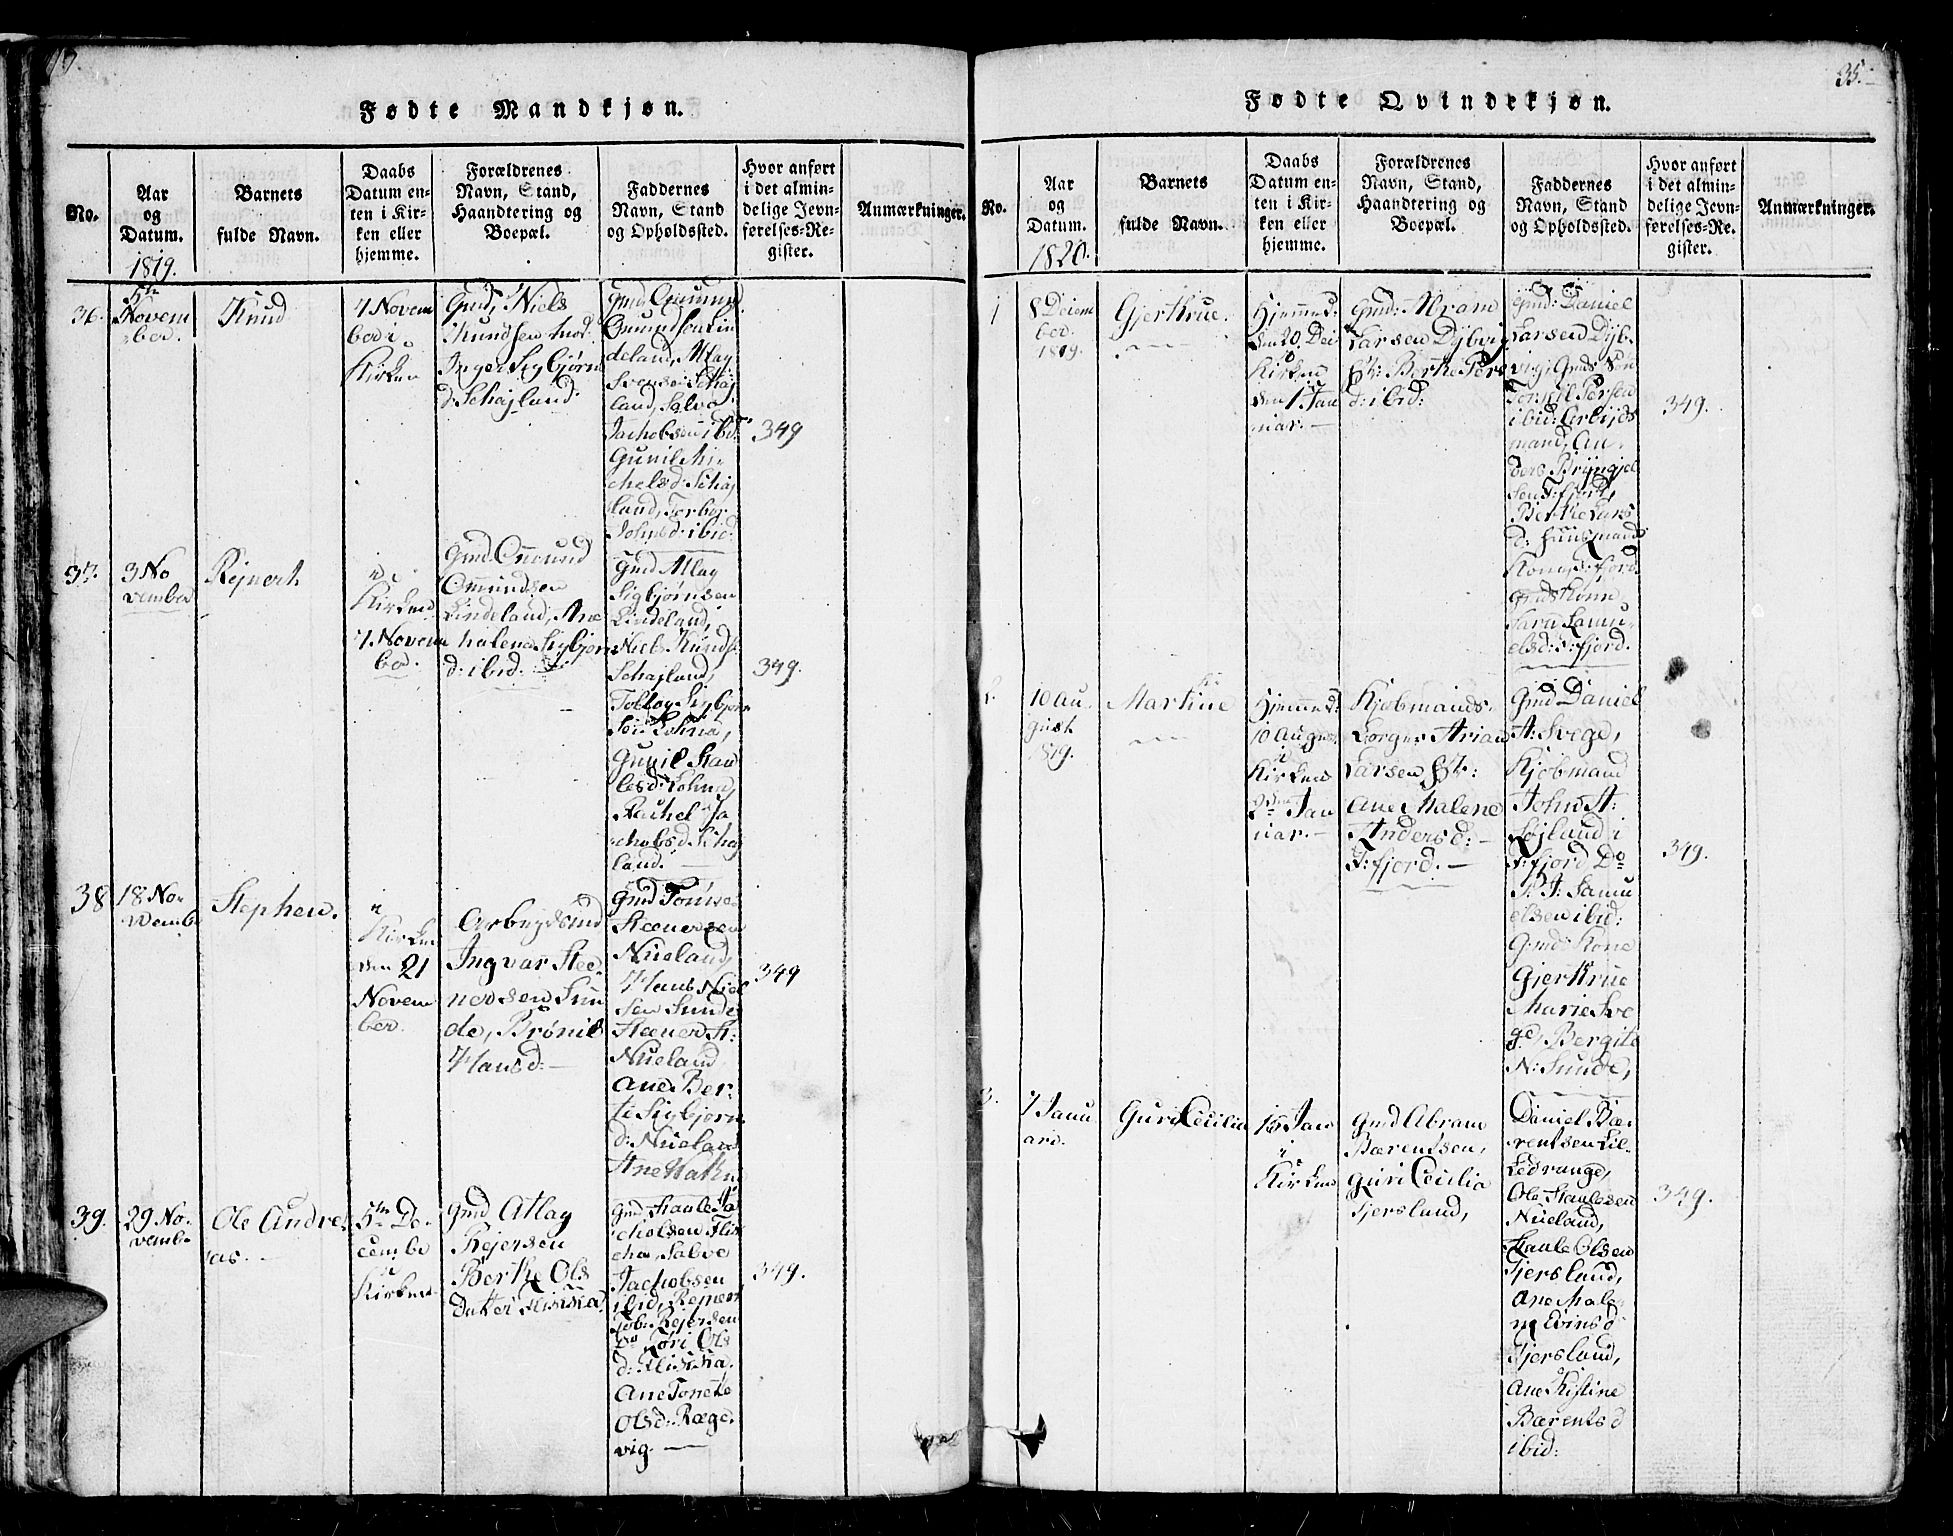 Fødte Mandkjøn.
No.
Aar
og
Datum.
1819.
Barnets
fulde Navn.
Daabs
Datum en-
ten i Kir-
ken eller
hjemme.
Forældrenes
Navn, Stand,
Haandtering og
Boepæl.
Faddernes
Navn, Stand
og Opholdssted.
Hvor anført
i det almin-
delige Jevn-
førelses-Re-
gister.
Anmærkninger.
36.
5te
Novem
ber.
Knud
7 Novem
ber i
Kirken
Gmd, Niels
Knudsen
Inger Sigbjørns
d: Schajland
Gmd. Ommund
Omundsen Lin
deland, Atlag
Svensen Schaj
land, Salve
Jachobsen ibd:
Gunil Mi-
chelsd: Schaj
land, Torbor
Johnsd: ibid:
349
37.
3 No
vember
Rejnert
i
Kirken
7 Novem
ber.
Gmd. Omund
Omundsen
Lindeland, Ane
Malena Sigbjørns
d: ibid:
Gmd Atlag
Sigbjørnsen
Lindeland,
Niels Knuds:
Schajland,
Tollag Sigbjørn
sen
Gunil Stau
lesd:
Rachel Ja
chobsd. Schaj
land.
349.
38
18 No-
vemb
Stephen.
i
Kirken
den 21
Novem
ber.
Arbeydsmd
Ingvar Stee-
nersen Sun
de, Brønil
Hansd:
Gmd Tønnes
Steenersen
Nueland,
Hans Niel
sen Sunde
Steener St:
Nueland
Ane Ber-
te Sigbjørns
d: Nueland
Ane
349
39.
29 No-
vemb.
Ole Andre
as.
5te De-
cembe
i
Kirken
Gmd Atlag
Rejersen
Berthe Ols
Datter
Gmd Staule Ja
chobsen Flik
ke, Salve
Jachobsen
ibid, Rejnert
Rejersen
Do Tøri Ols
d:
Ane Tonette
Olsd: Ræge
vig.
349.
35.
Fødte Qvindekjøn.
No.
Aar
og
Datum.
1820.
Barnets
fulde Navn.
Daabs
Datum en-
ten i Kir-
ken eller
hjemme.
Forældrenes
Navn, Stand,
Haandtering og
Boepæl.
Faddernes
Navn, Stand
og Opholdssted.
Hvor anført
i det almin-
delige Jevn-
førelses-Re-
gister.
Anmærkninger.
1
8 Decem
ber
1819.
Gjertrue.
Hjemmed:
den 20. De
i
Kirken
den 1 Jan
uar.
Gmd: Abram
Larsen Dybvig
Berthe Pers
d: ibid:
Gmd: Daniel
Larsen Dyb-
vig, Gmds Søn
Torkil Persen
ibid: Arbejds
mand, An-
ders Bryngjel
sen S: fjord,
Berthe Lars
d: Huusmands
Kone, S: fjord
Gmds Kone
Sara Samu-
elsd: S: fjord.
349.
2.
10 Au-
gust
1819.
Martine
Hjemmed:
10 August
i
Kirken
2den Jan
uar.
Kjøbmands-
borger Arian
Larsen
Ane Malene
Andersd:
S: fjord.
Gmd Daniel
A: Svege,
Kjøbmand
John A:
Søjland i
S: fjord Do
Samu
elsen ibid:
Gmd: Kone
Gjertrue
Marie Sve
ge, Bergite
N: Sunde,
349.
3.
7 Janu
ari.
Guri Cecilia
16 Jan
i
Kirken
Gmd Abram
Bærentsen,
Guri Cecilia
Fjersland,
Daniel Bæ-
rentsen Lil-
ledrange,
Ole Staulesen
Nueland,
Staule Olsen
Fjersland,
Ane Male-
ne Evinsd
Fjersland,
Ane Kistine
Bærentsd
ibid:
349.